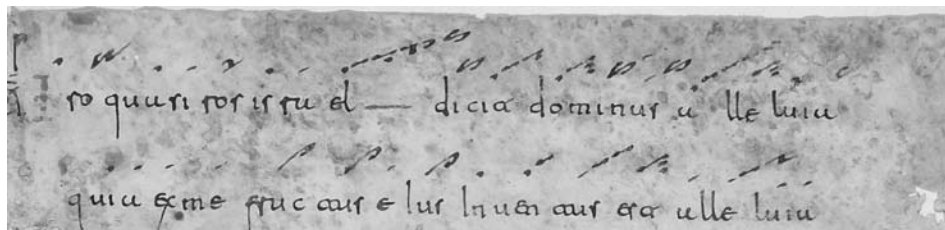 Ero quasi ros is ra el dicit dominus a lle luia
quia ex me fruc tus e ius inuen tus est alle luia